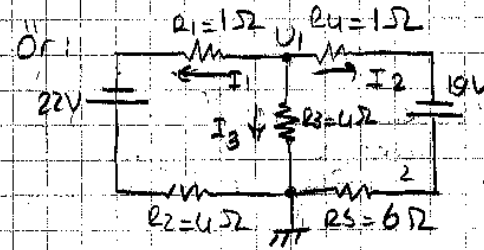 R1=1Ω U1 R4=1Ω
Ör:
I1 I2
22V 19V
I3 R3=4Ω
2
R2=4Ω R5=6Ω